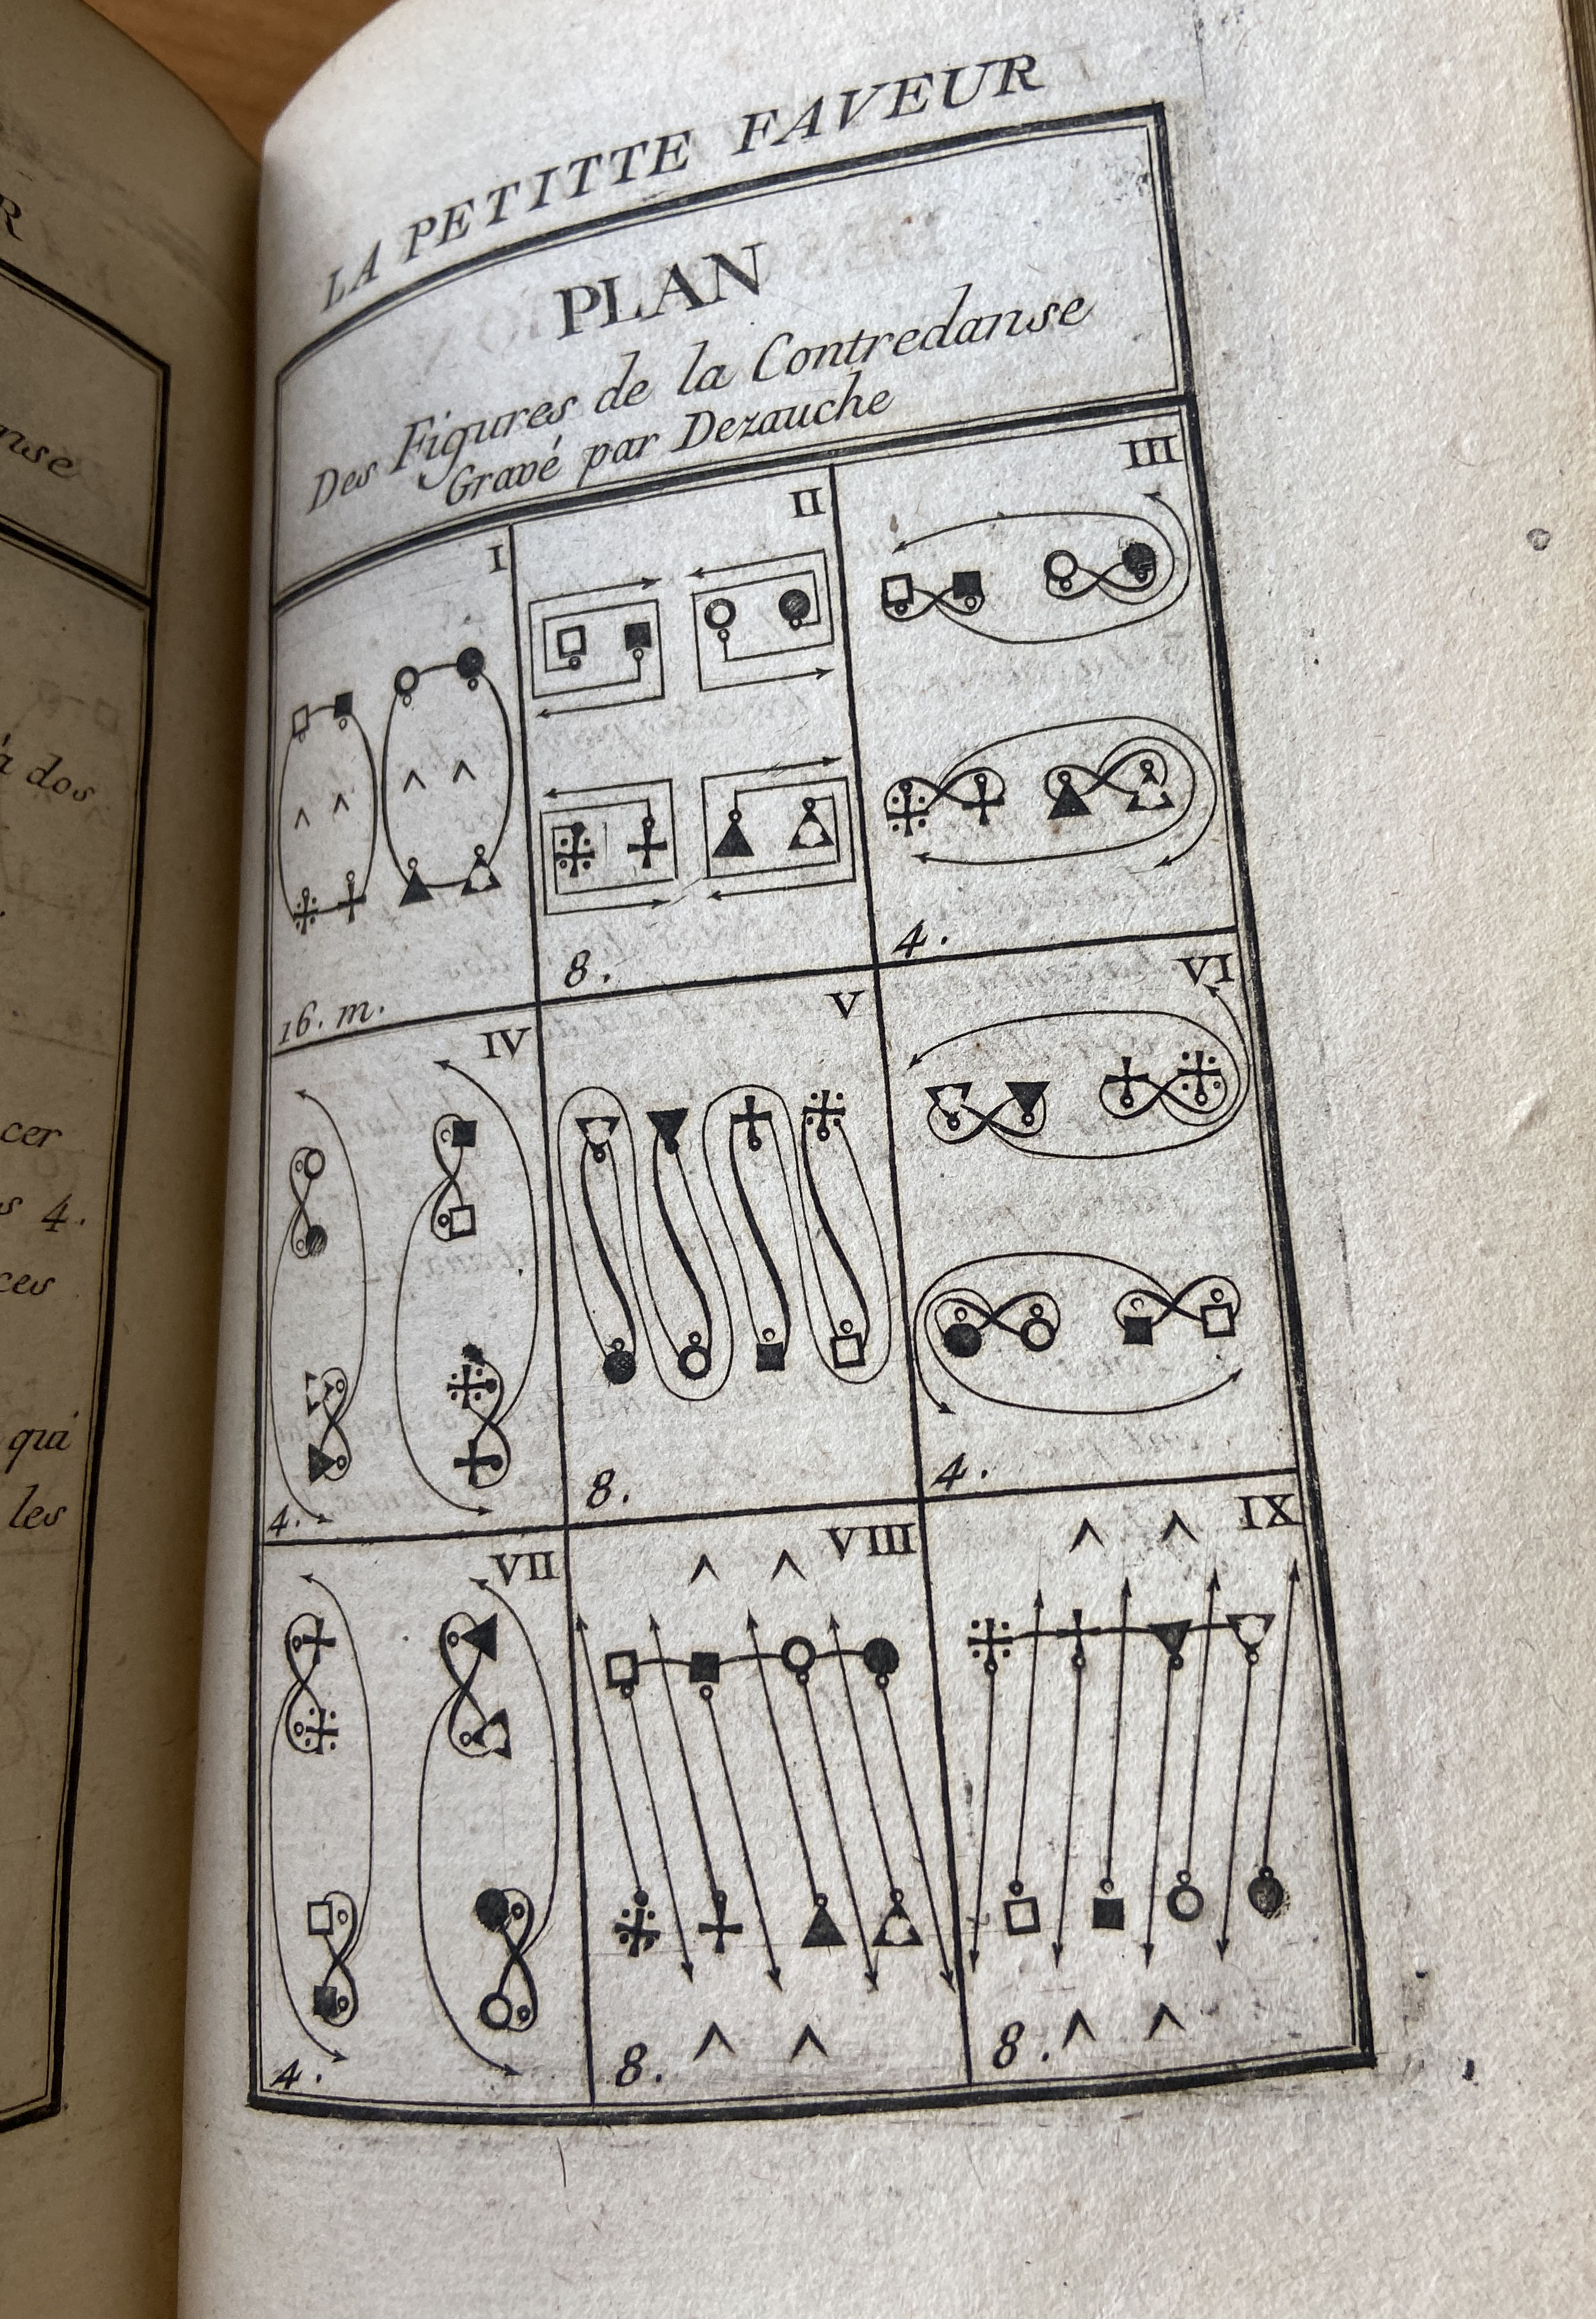 LA PETITTE FAVEUR
PLAN
Des Figures de la Contredanse
Gravé par Dezauche
I
16. m.
II
8.
III
4.
IV
4.
V
8.
VI
4.
VII
4.
VIII
8.
IX
8.
R
à dos
cer
s 4.
ces
qui
les